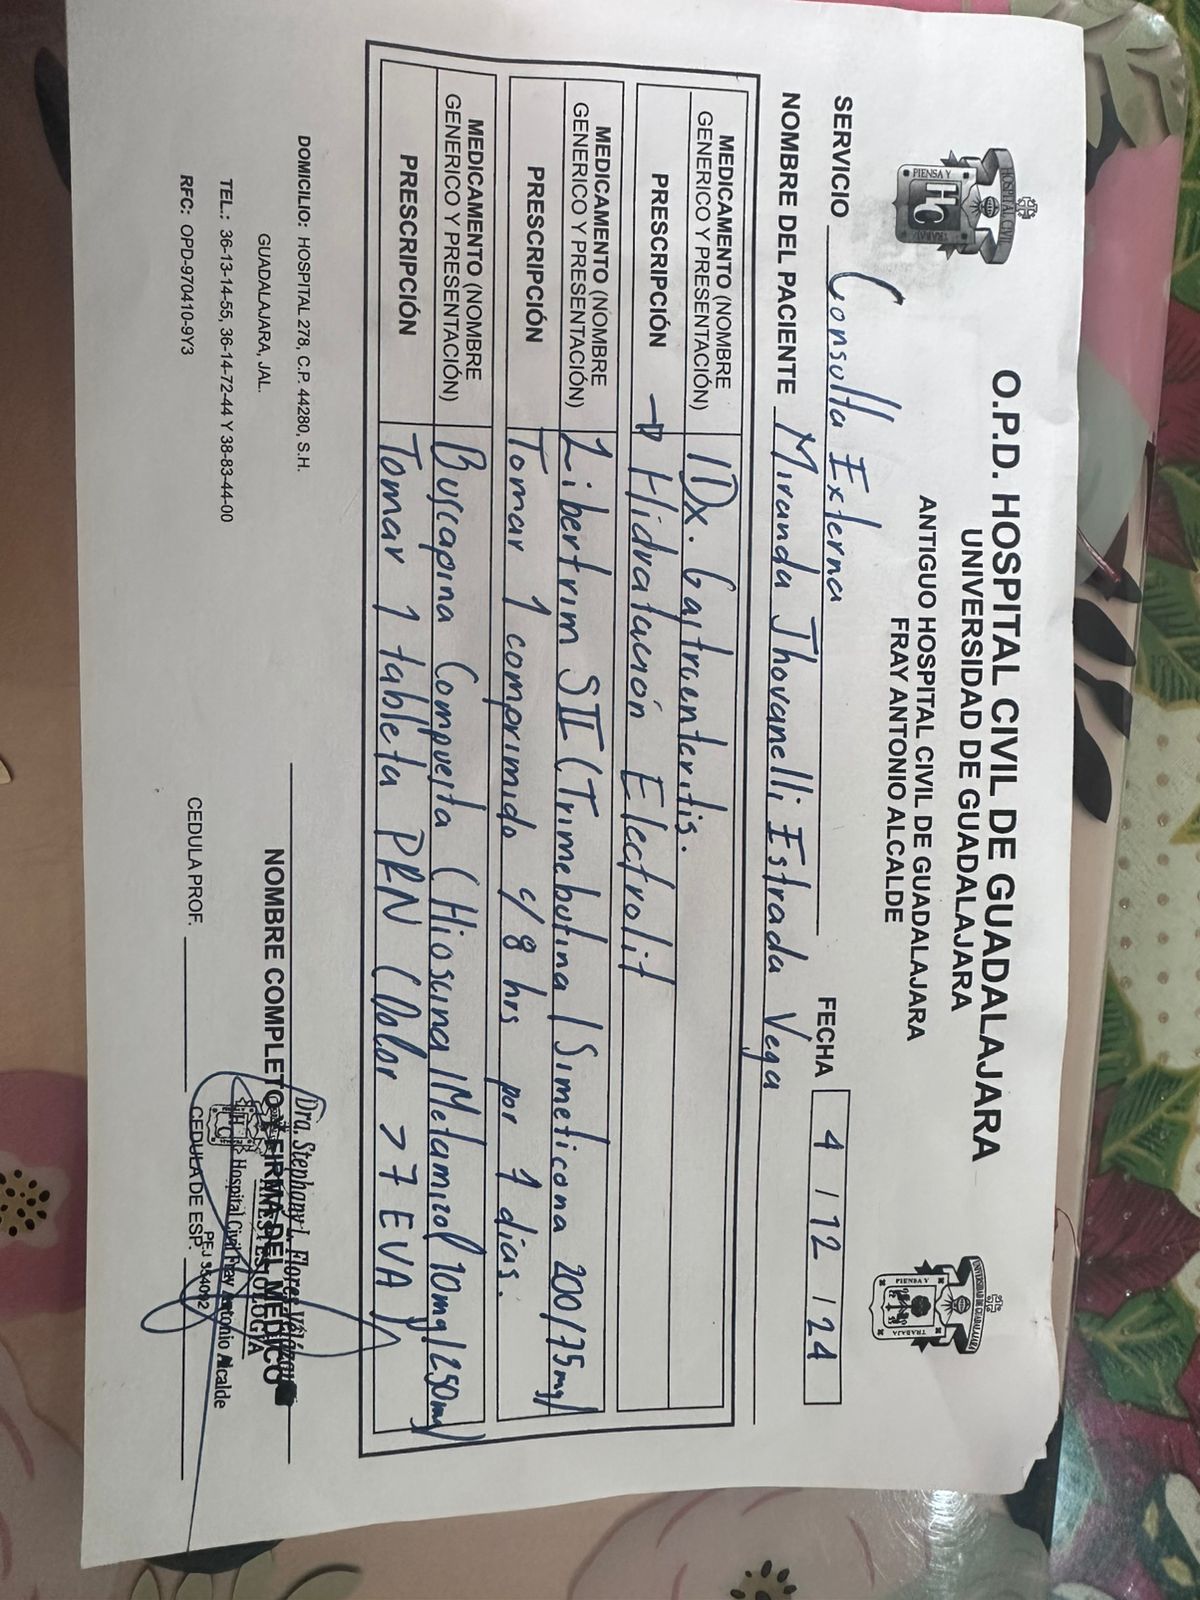 HOSPITAL CIVIL
PIENSA Y
TRABAJA
HC
O.P.D. HOSPITAL CIVIL DE GUADALAJARA
UNIVERSIDAD DE GUADALAJARA
ANTIGUO HOSPITAL CIVIL DE GUADALAJARA
FRAY ANTONIO ALCALDE
UNIVERSIDAD DE GUADALAJARA
PIENSA Y
TRABAJA
SERVICIO Consulta Externa FECHA 4 / 12 / 24
NOMBRE DEL PACIENTE Miranda Jhovanelli Estrada Vega
MEDICAMENTO (NOMBRE
GENERICO Y PRESENTACIÓN) IDx. Gastroenteritis.
PRESCRIPCIÓN → Hidratación Electrolit
MEDICAMENTO (NOMBRE
GENERICO Y PRESENTACIÓN) Libertrim SII (Trimebutina / Simeticona 200/75mg)
PRESCRIPCIÓN Tomar 1 comprimido c/8 hrs por 7 dias.
MEDICAMENTO (NOMBRE
GENERICO Y PRESENTACIÓN) Buscapina Compuesta (Hioscina / Metamizol 10mg/250mg)
PRESCRIPCIÓN Tomar 1 tableta PRN (Dolor >7 EVA)
DOMICILIO: HOSPITAL 278, C.P. 44280, S.H.
GUADALAJARA, JAL.
TEL.: 36-13-14-55, 36-14-72-44 Y 38-83-44-00
RFC: OPD-970410-9Y3
Dra. Stephany L. Flores
NOMBRE COMPLETO Y FIRMA DEL MEDICO
ANESTESIOLOGIA
Hospital Civil Fray Antonio Alcalde
PEJ 354092
CEDULA PROF. CEDULA DE ESP.